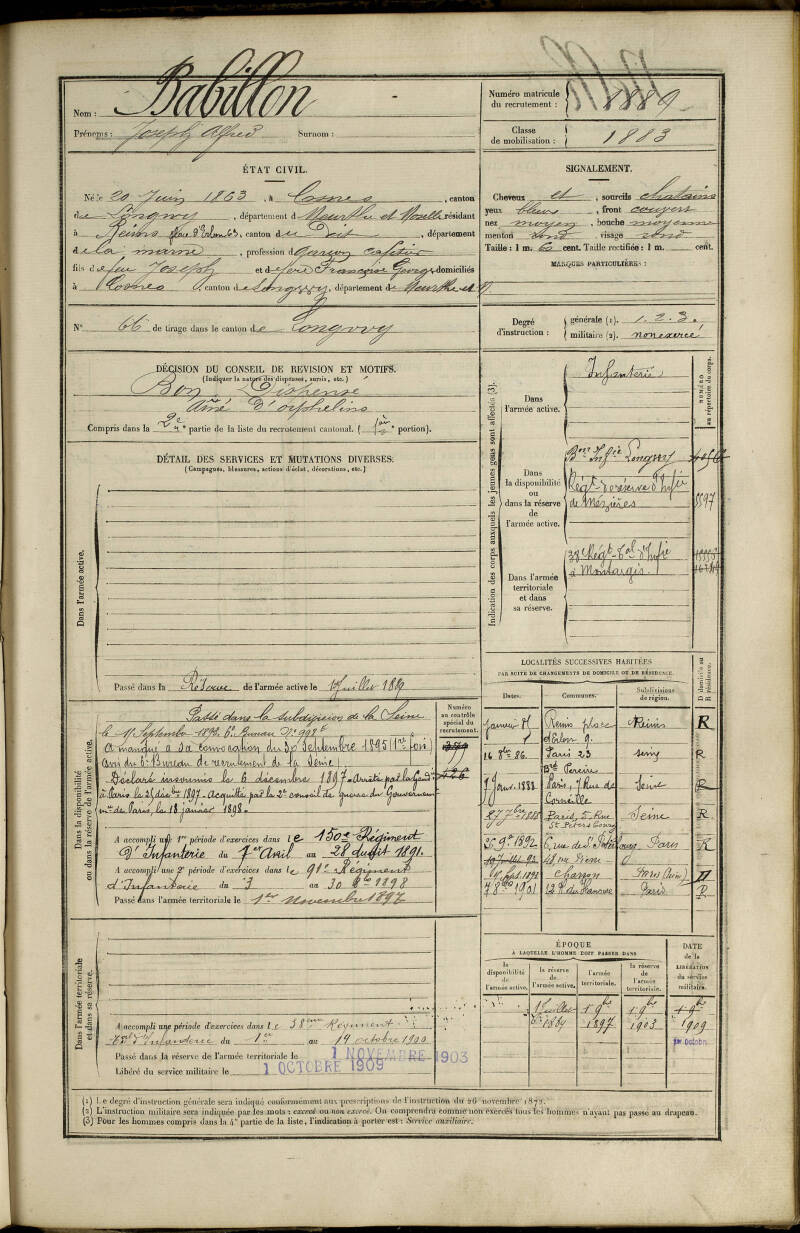 Nom : Babillon
Prénoms : Joseph Alfred Surnom :
Numéro matricule du recrutement : 1889
Classe de mobilisation : 1883
ÉTAT CIVIL.
Né le 20 Juin 1863, à Cosnes, canton
de Longwy, département de Meurthe et Moselle, résidant
à Reims place d'Erlon 63, canton de Doit, département
de la marne, profession de garçon cafetier
fils de feu Joseph et de feue Françoise domiciliés
à Cosnes, canton de Longwy, département de Meurthe et M.
N° 66 de tirage dans le canton de Longwy
SIGNALEMENT.
Cheveux et, sourcils chatains
yeux bleus, front couvert
nez moyen, bouche moyenne
menton rond, visage rond
Taille : 1 m. 6 cent. Taille rectifiée : 1 m. cent.
MARQUES PARTICULIÈRES :
Degré d'instruction : générale (1). 1.2.3.
militaire (2). non exercé
DÉCISION DU CONSEIL DE REVISION ET MOTIFS.
(Indiquer la nature des dispenses, sursis, etc.)
Bon Dispensé
Ainé D'orphelins
Compris dans la 2e partie de la liste du recrutement cantonal. ( portion).
DÉTAIL DES SERVICES ET MUTATIONS DIVERSES.
(Campagnes, blessures, actions d'éclat, décorations, etc.)
Dans l'armée active.
Passé dans la Réserve de l'armée active le 1er Juillet 1889
Indication des corps auxquels les jeunes gens sont affectés (3).
NUMÉRO au répertoire du corps.
Dans l'armée active. Infanterie
Dans la disponibilité ou dans la réserve de l'armée active.
Bon Infie Longwy
Régt de réserve d'Infie
de Mézières 5597
Dans l'armée territoriale et dans sa réserve.
38e Régt Tal d'Infie
à Montargis.
Dans la disponibilité ou dans la réserve de l'armée active.
Numéro au contrôle spécial du recrutement.
Passé dans la subdivision de la Seine
le Septembre 6e Bureau N°
A manqué à sa convocation du 30 Septembre 1895 (1re fois)
Avis du 6e Bureau de recrutement de la Seine
Déclaré insoumis le 6 décembre 1897. Arrêté par la Gendie
à Paris le 25 Xbre 1897. Acquitté par le 2e conseil de guerre du Gouvernement
mre de Paris, le 18 janvier 1898.
A accompli une 1re période d'exercices dans le 150e Régiment
D'Infanterie du 1er Avril au 28 dudit 1891.
A accompli une 2e période d'exercices dans le 91e Régiment
d'Infanterie du 3 au 30 1898
Passé dans l'armée territoriale le 1er Novembre 1897
LOCALITÉS SUCCESSIVES HABITÉES
PAR SUITE DE CHANGEMENTS DE DOMICILE OU DE RÉSIDENCE.
Dates. Communes. Subdivisions de région. D domicile ou R résidence.
Janvier 85 Reims place d'Erlon 9. Reims R
16 8bre 86. Paris 23 Bd Pereire Seine R
7 Janv. 1888 Paris, 7 Rue de Corneille Seine R
27 7bre 1888 Paris, 5 Rue St Petersbourg Seine R
1892 6 rue de St Petersbourg Paris R
10 Juillet 92 48 rue
Charron Paris
7 8bre 1901 12 R. du Hanovre Paris D
Dans l'armée territoriale et dans sa réserve.
A accompli une période d'exercices dans le 38eme Régiment
Tal d'Infanterie du 1er au 14 octobre 1900
Passé dans la réserve de l'armée territoriale le 1 NOVEMBRE 1903
Libéré du service militaire le 1 OCTOBRE 1909
ÉPOQUE
À LAQUELLE L'HOMME DOIT PASSER DANS
DATE de la LIBÉRATION du service militaire.
la disponibilité de l'armée active. la réserve de l'armée active. l'armée territoriale. la réserve de l'armée territoriale.
1 Juillet 1889 1 9bre 1897 1 9bre 1903 1 9bre 1909
1er Octobre
(1) Le degré d'instruction générale sera indiqué conformément aux prescriptions de l'instruction du 26 novembre 1872.
(2) L'instruction militaire sera indiquée par les mots : exercé ou non exercé. On comprendra comme non exercés tous les hommes n'ayant pas passé au drapeau.
(3) Pour les hommes compris dans la 4e partie de la liste, l'indication à porter est : Service auxiliaire.